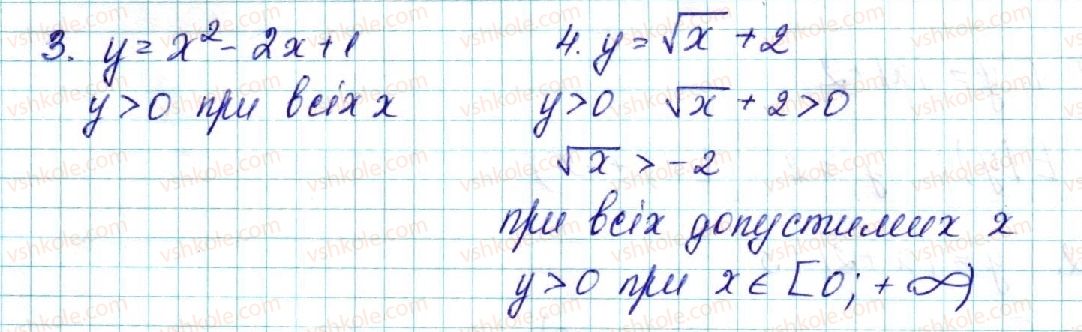 3. y = x² - 2x + 1
y > 0 при всіх x
4. y = √x + 2
y > 0 √x + 2 > 0
√x > -2
при всіх допустимих x
y > 0 при x ∈ [0; + ∞)